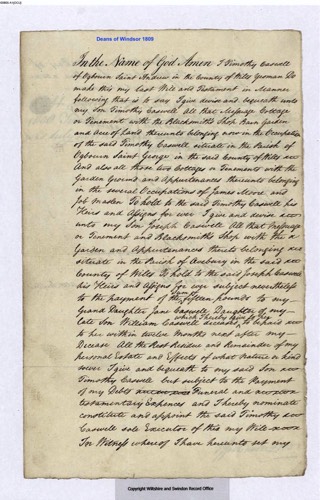 Deans of Windsor 1808
In the Name of God Amen I Timothy Caswell
of Ogbourn Saint Andrew in the County of Wilts Yeoman Do
make this my last Will and Testament in Manner
following that is to say I give devise and bequeath unto
my Son Timothy Caswell All that Messuage Cottage
or Tenement with the Blacksmiths Shop Barn Garden
and Acre of Land thereunto belonging now in the Occupation
of the said Timothy Caswell situate in the Parish of
Ogbourn Saint George in the said County of Wilts
And also all those two Cottages or Tenement with the
Garden Ground and Appurtenances thereunto belonging
in the several Occupations of James Moore and
Job Maslen To hold to the said Timothy Caswell his
Heirs and Assigns for ever I give and devise
unto my Son Joseph Caswell All that Messuage
or Tenement and Blacksmiths Shop with the
Garden and Appurtenances thereto belonging
situate in the Parish of Avebury in the said
County of Wilts To hold to the said Joseph Caswell
his Heirs and Assigns for ever subject nevertheless
to the payment of the sum of fifteen pounds to my
Grand Daughter Jane Caswell Daughter of my
late Son William Caswell deceased which I hereby give to her to be paid
to her within twelve Months next after my
Decease All the Rest Residue and Remainder of my
personal Estate and Effects of what Nature or kind
soever I give and bequeath to my said Son
Timothy Caswell but subject to the Payment
of my Debts Funeral and
testamentary Expences and I hereby nominate
constitute and appoint the said Timothy
Caswell sole Executor of this my Will
In Witness whereof I have hereunto set my
Copyright Wiltshire and Swindon Record Office